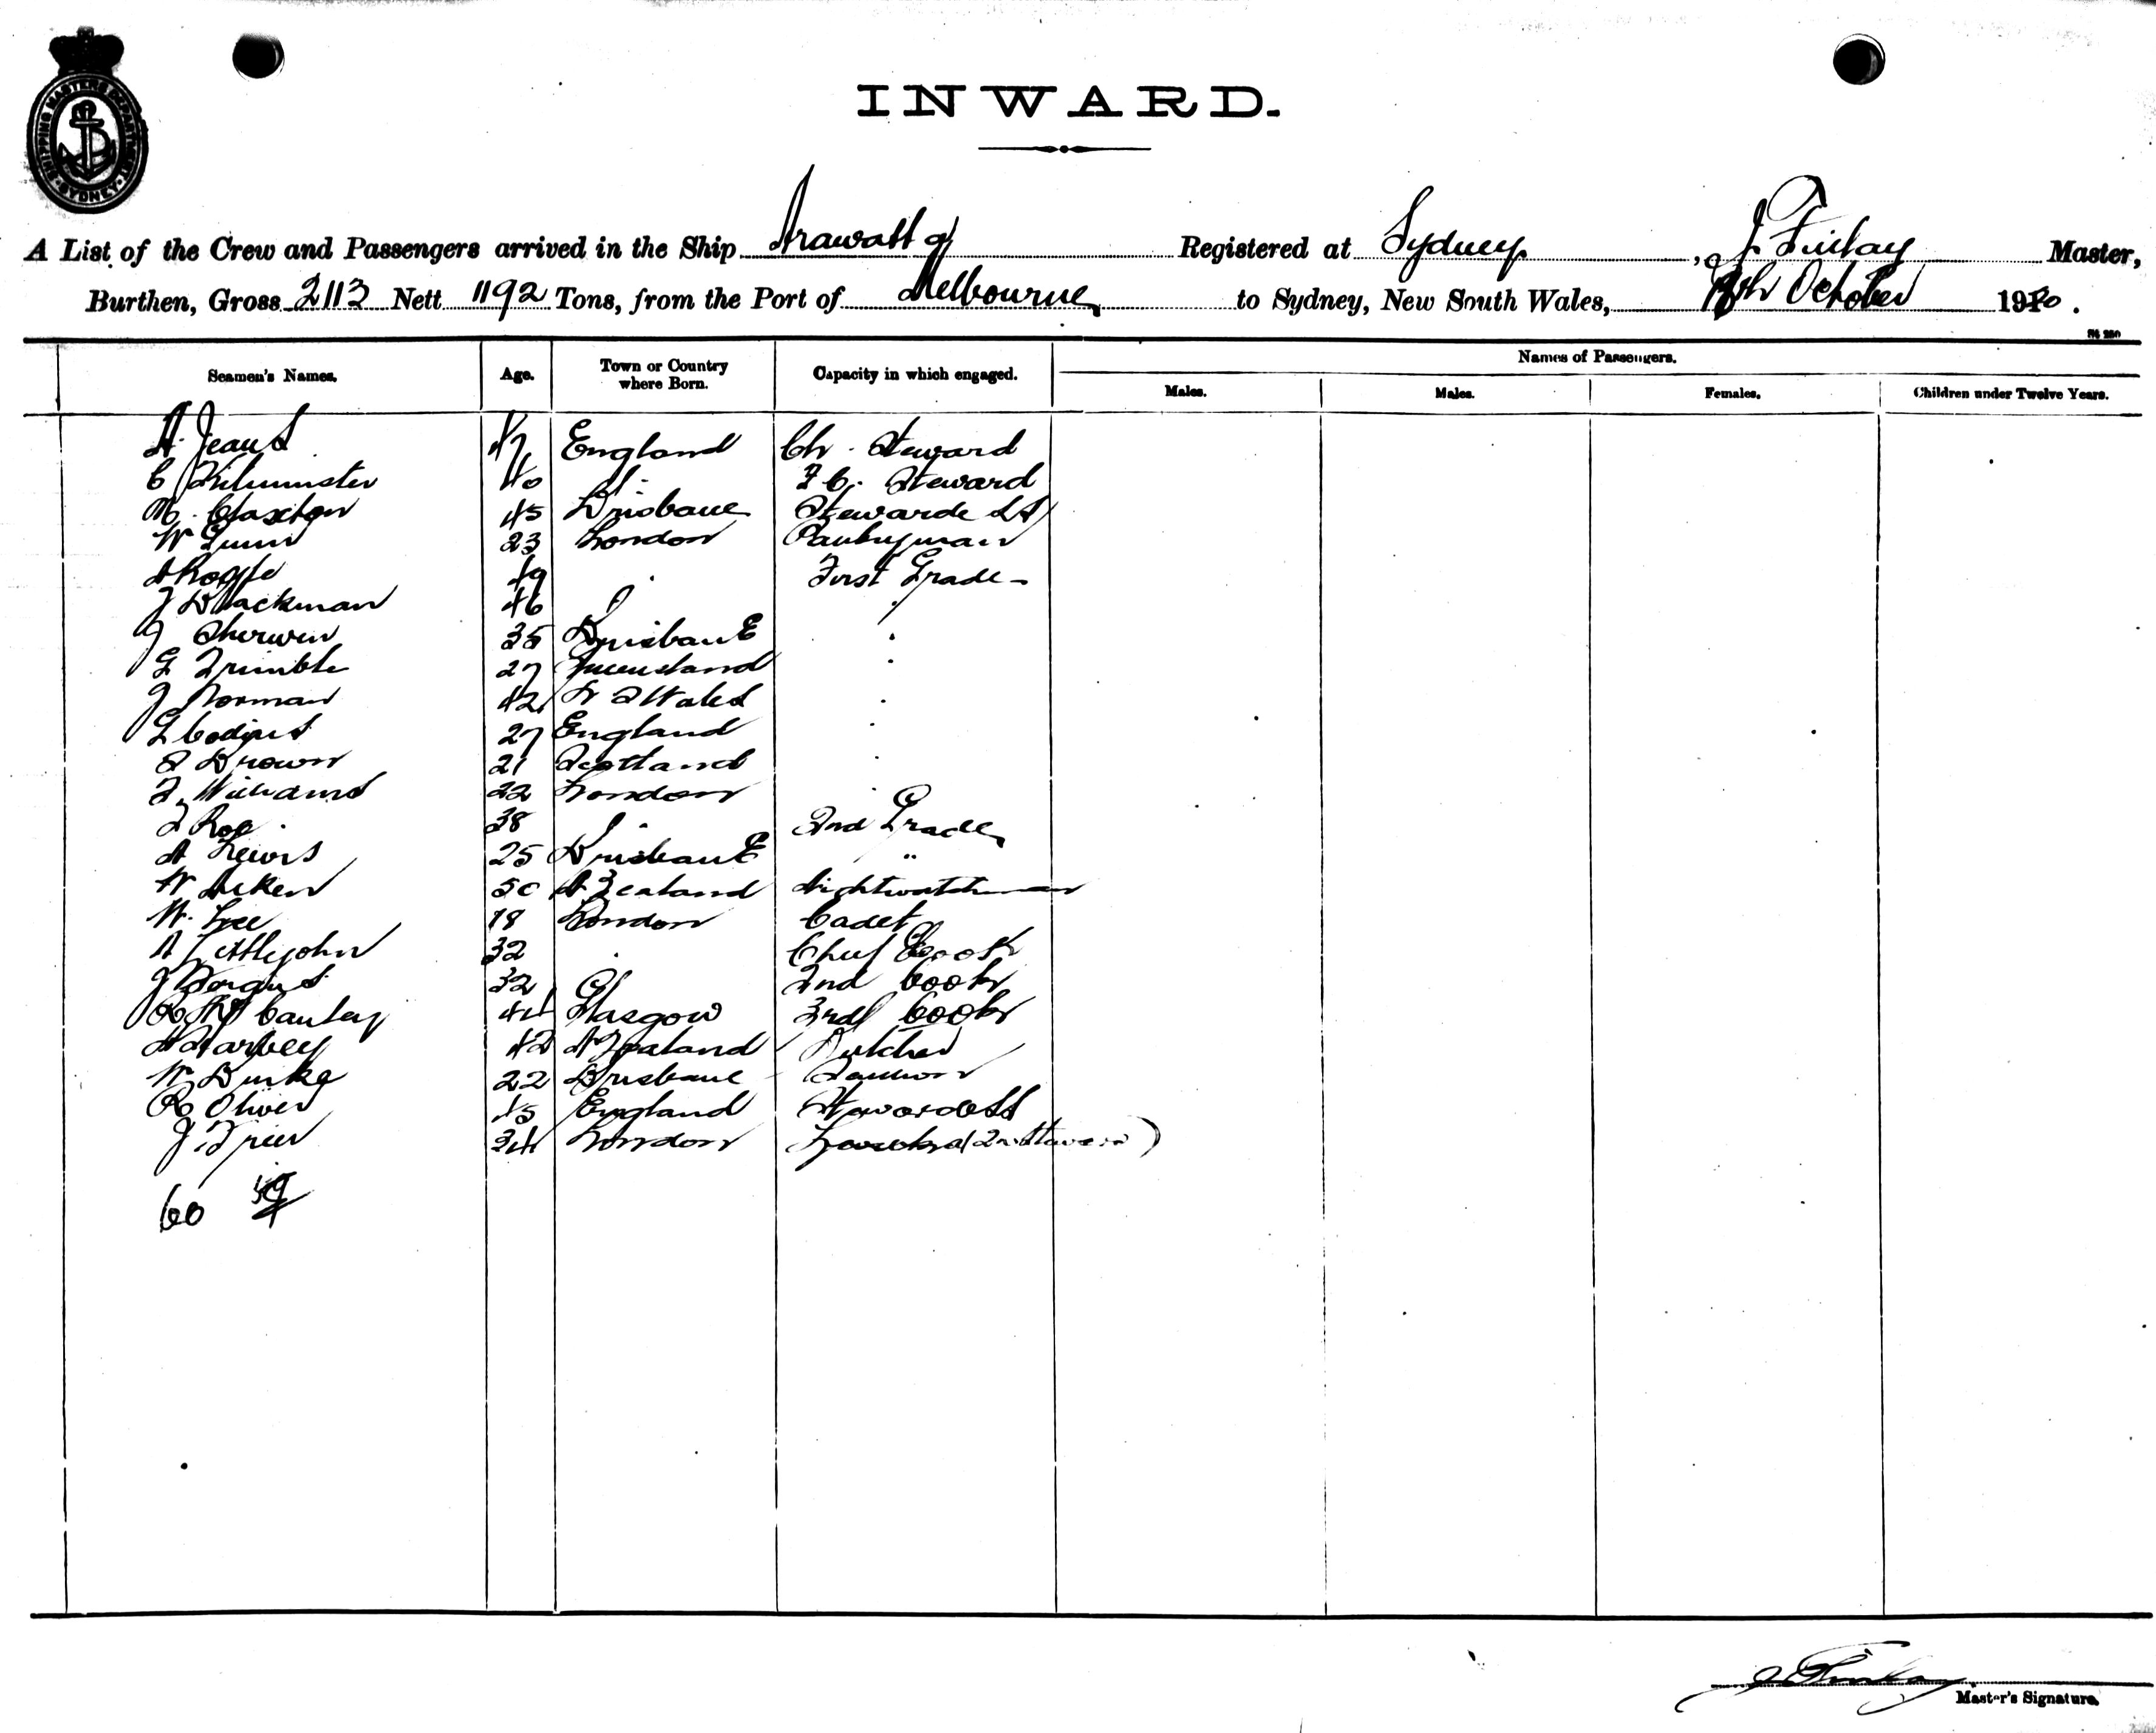 SHIPPING MASTERS DEPARTMENT SYDNEY
INWARD.
A List of the Crew and Passengers arrived in the Ship Arawatta Registered at Sydney, J. Finlay Master,
Burthen, Gross 2113 Nett 1192 Tons, from the Port of Melbourne to Sydney, New South Wales, October 19
Names of Passengers.
Seamen's Names. Age. Town or Country where Born. Capacity in which engaged. Males. Males. Females. Children under Twelve Years.
A. Jeans 47 England Ch. Steward
C Kilminster 40 " F.C. Steward
M. Claxton 45 Brisbane Stewardess
W Gunn 23 London Pantryman
49 " First Grade
J Blackman 46 " "
J Sherwin 35 Brisbane "
G Trimble 27 Queensland "
J Norman 42 N S Wales "
27 England "
S Brown 21 Scotland "
F. Williams 22 London "
38 " 2nd Grade
A Lewis 25 Brisbane "
W Aiken 50 N Zealand Nightwatchman
W. Lee 18 London Cadet
A Littlejohn 32 " Chief Cook
J Fergus 32 " 2nd Cook
R McCauley 44 Glasgow 3rd Cook
A Harvey 42 N Zealand Butcher
W Burke 22 Brisbane
R Oliver 45 England Stewardess
J. Trier 34 London
60 59
J Finlay
Master's Signature.